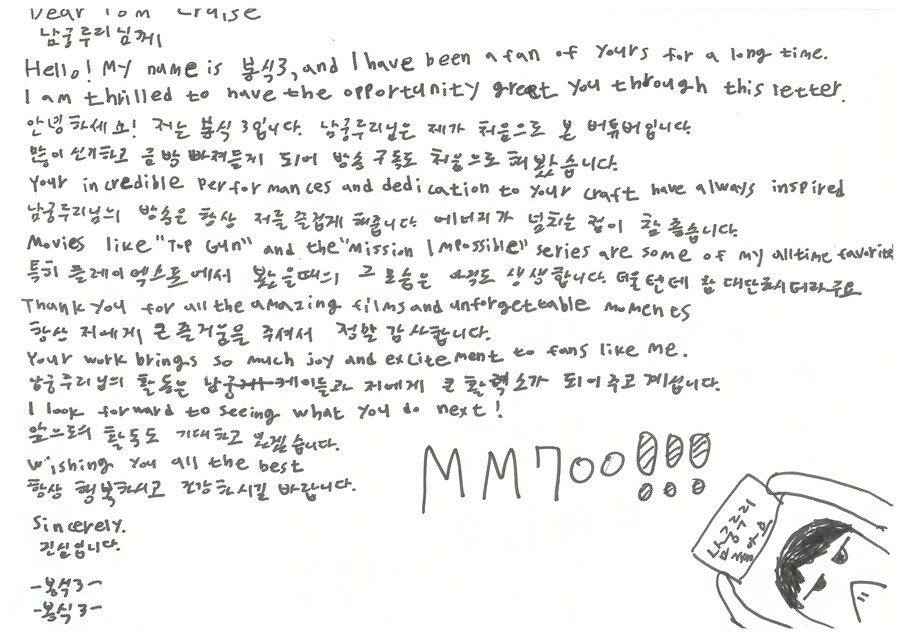 Dear Tom Cruise
남궁루리님께
Hello! My name is 봉식3, and I have been a fan of yours for a long time.
I am thrilled to have the opportunity great you through this letter.
안녕하세요! 저는 봉식3입니다. 남궁루리님은 제가 처음으로 본 버튜버입니다.
많이 신기하고 금방 빠져들게 되어 방송 구독도 처음으로 해봤습니다.
Your incredible performances and dedication to your craft have always inspired
남궁루리님의 방송은 항상 저를 즐겁게 해줍니다. 에너지가 넘치는 점이 참 좋습니다.
Movies like "Top Gun" and the "Mission Impossible" series are some of my alltime favorite
특히 플레이엑스포에서 봤을때의 그 모습은 아직도 생생합니다. 더울텐데 참 대단하시더라구요
Thank you for all the amazing films and unforgettable moments
항상 저에게 큰 즐거움을 주셔서 정말 감사합니다.
Your work brings so much joy and excitement to fans like me.
남궁루리님의 활동은 남궁 케이들과 저에게 큰 활력소가 되어주고 계십니다.
I look forward to seeing what you do next!
앞으로의 활동도 기대하고 있겠습니다.
Wishing you all the best
항상 행복하시고 건강하시길 바랍니다.
MM700!!!
Sincerely.
진심입니다.
-봉식3-
-봉식3-
남궁루리